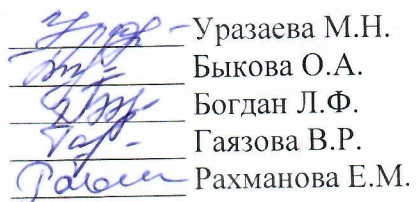 Уразаева М.Н.
Быкова О.А.
Богдан Л.Ф.
Гаязова В.Р.
Рахманова Е.М.